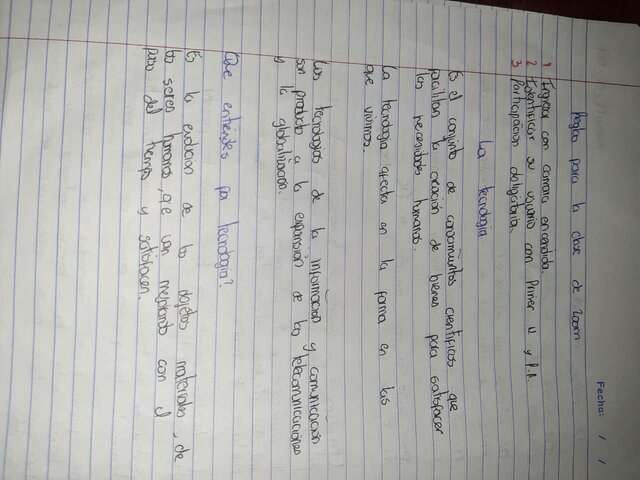 Fecha: / /
Reglas para la clase de zoom
1 Ingresar con camara encendida.
2 Identificar su usuario con Primer N y P.A
3 Participación obligatoria.
La tecnologia
Es el conjunto de conocimientos cientificos que
facilitan la creación de bienes para satisfacer
las necesidades humanas.
La tecnologia afecta en la forma en las
que vivimos.
Las tecnologias de la información y comunicación
son producto a la expansión de las telecomunicaciones
y la globalización.
Que entiendes por tecnologia?
Es la evolucion de los objetos materiales, de
los seres humanos, que van mejorando con el
paso del tiempo y satisfacen.